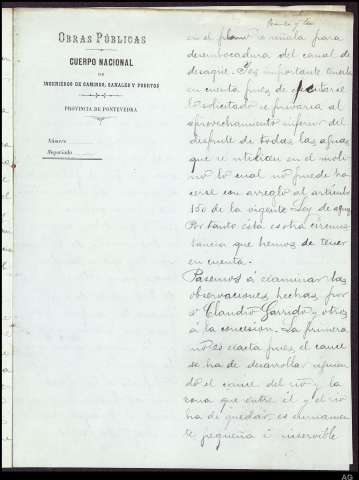 OBRAS PÚBLICAS
CUERPO NACIONAL
DE
INGENIEROS DE CAMINOS, CANALES Y PUERTOS
PROVINCIA DE PONTEVEDRA
Número
Negociado
en el plano se señala para
desembocadura del canal de
desague. Es importante tenerlo
en cuenta pues de ejecutarse
lo solicitado se privaria al
aprovechamiento inferior del
disfrute de todas las aguas
que se utilicen en el moli
no lo cual no puede ha
cerse con arreglo al artículo
150 de la vigente Ley de aguas
Por tanto esta es otra circuns
tancia que hemos de tener
en cuenta.
Pasemos á examinar las
observaciones hechas por
Dn Claudio Garrido y otros
á la concesion. La primera
no es exacta pues el cauce
se ha de desarrollar siguien
do el cauce del rio y la
zona que entre él y el rio
ha de quedar es sumamen
te pequeña é inservible
AG